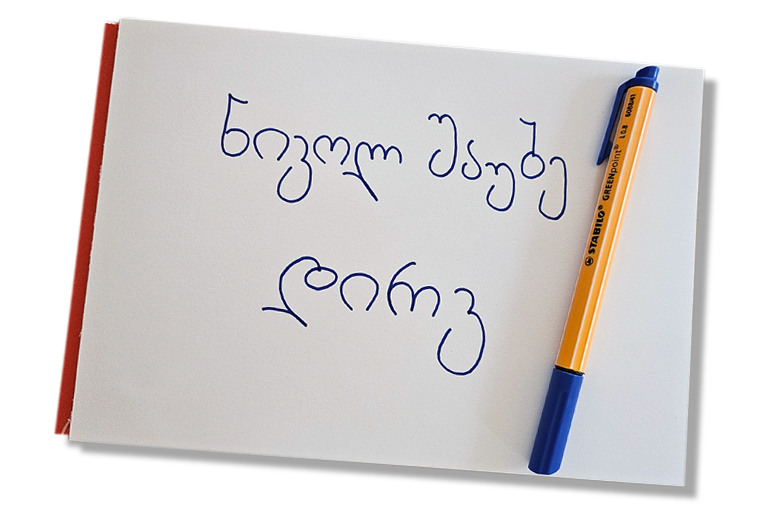 ნიკოლ შაუბე
დირკ
STABILO® GREENpoint® L 0.8 6088/41